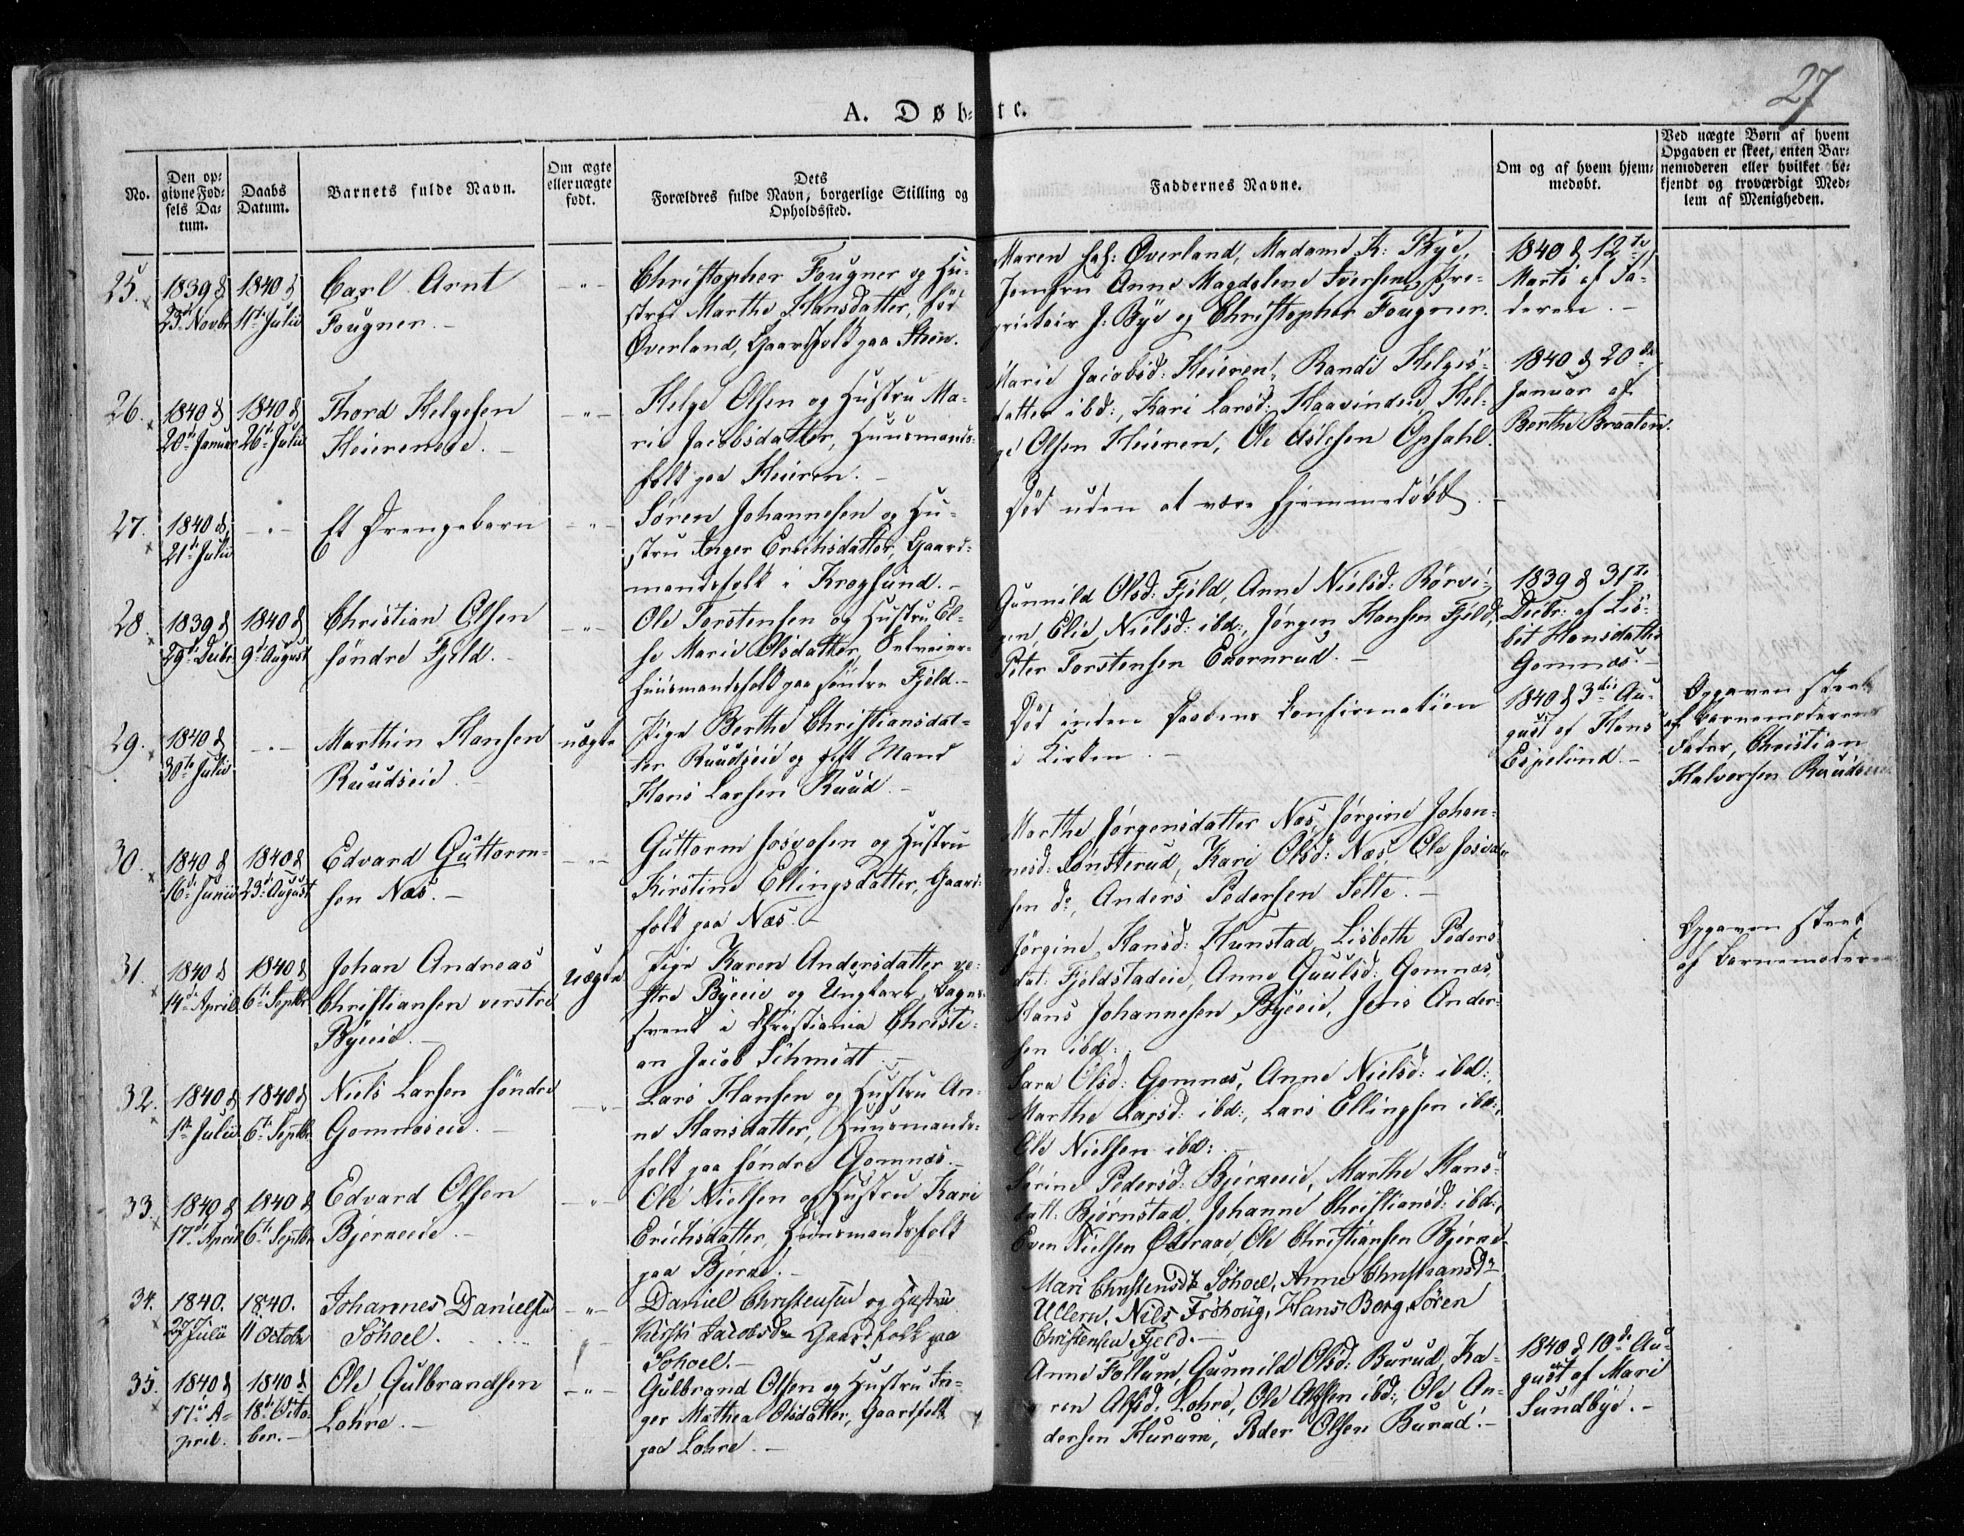 27
A. Døbte.
No.
Den op-
givne Fød-
sels Da-
tum.
Daabs
Datum.
Barnets fulde Navn.
Om ægte
eller uægte
født.
Dets
Forældres fulde Navn, borgerlige Stilling og
Opholdssted.
Faddernes Navne.
Om og af hvem hjem-
medøbt.
Ved uægte Børn af hvem
Opgaven er skeet, enten Bar-
nemoderen eller hvilket be-
kjendt og troværdigt Med-
lem af Menigheden.
25.
1839 d
23d Novbr
1840 d
4de Julii
Carl Arnt
Fougner.
Christopher Fougner og Hu-
stru Marthe Hansdatter, født
Øverland, Gaardfolk paa Steen.
Maren Øverland, Madame K: Bye,
Jomfru Anne Magdelene Iversen, Pro-
prietair J: Bye og Christopher Fougner.
1840 d 12te
Marts af Fa-
deren.
26.
1840 d
20d Januar
1840 d
26d Julii
Thord Helgesen
Heiereneie.
Helge Olsen og Hustru Ma-
rie Jacobsdatter, Huusmands-
folk paa Heieren.
Marie Jacobsd: Heieren, Randi Helges-
datter ibd:, Kari Larsd: Haavindeie, Hel-
ge Olsen Heieren, Ole Aslesen Opsahl.
1840 d 20de
Januar af
Berthe Braaten.
27.
1840 d
21d Julii
Et Drengebarn
Søren Johannesen og Hu-
stru Inger Erichsdatter, Gaard-
mandsfolk i Krogsund.
Død uden at være hjemmedøbt.
28
1839 d
29d Decbr
1840 d
9d August
Christian Olsen
søndre Fjeld.
Ole Torstensen og Hustru El-
se Marie Olsdatter, Selveier-
huusmandsfolk paa søndre Fjeld.
Gunnild Olsd: Fjeld, Anne Nielsd: Rørvi-
gen Elie Nielsd: ibd:, Jørgen Hansen Fjeld,
Peter Torstensen
1839 d 31te
Decbr: af Lis-
bet Hansdatter
Gomnæs.
29.
1840 d
30te Julii
Marthin Hansen
Ruudseie.
uægte
Pige Berthe Christiansdat-
ter Ruudseie og gift Mand
Hans Larsen Ruud.
Død inden Daabens Confirmation
i Kirken.
1840 d 3die Au-
gust af Hans
Espelund.
Opgaven skeet
af Barnemoderens
Fader, Christian
Halvorsen Ruudseie
30.
1840 d
16d Junii
1840 d
23d August
Edvard Guttorm-
sen Næs.
Guttorm Josvasen og Hustru
Kirstine Ellingsdatter, Gaard-
folk paa Næs.
Marthe Jørgensdatter Næs, Jørgine Johan-
nesd: Lønsterud, Kari Olsd: Næs, Ole Josva-
sen do, Anders Pedersen Sette.
31.
1840 d
14d April
1840 d
6d Septbr
Johan Andreas
Christiansen verstre
Byeeie.
uægte
Pige Karen Andersdatter ve-
stre Byeeie og Ungkarl, Bager-
svend i Christiania Christi-
an Jacob Schmidt.
Jørgine Hansd: Hunstad, Lisbeth Peders-
dat: Fjeldstadeie, Anne Guulsd: Gomnæs,
Hans Johannesen Byeeie, Jens Ander-
sen ibd:
Opgaven skeet
af Barnemoderen
32.
1840 d
1ste Julii
1840 d
6d Septbr
Niels Larsen søndre
Gomnæseie.
Lars Hansen og Hustru An-
ne Hansdatter, Huusmands-
folk paa søndre Gomnæs.
Sara Olsd: Gomnæs, Anne Nielsd: ibd:,
Marthe Larsd: ibd:, Lars Ellingsen ibd:,
Ole Nielsen ibd:
33.
1840 d
17d April
1840 d
6d Septbr
Edvard Olsen
Bjerneeie.
Ole Nielsen og Hustru Kari
Erichsdatter, Huusmandsfolk
paa Bjerne.
Sørine Pedersd: Bjerneeie, Marthe Hans-
datt: Bjørnstad, Johanne Christiansd: ibd:,
Even Nielsen Østraae, Ole Christiansen Bjerne.
34.
1840.
27 Julii
1840.
11 Octobr
Johannes Danielsen
Søhoel.
Daniel Christensen og Hustru
Kirsti Jacobsdr Gaardfolk paa
Søhoel.
Mari Christensdr Søhoel, Anne Christiansdr
Ullern, Nils Frøhoug, Hans Berg, Søren
Christensen Fjeld.
35.
1840 d
17d A-
pril.
1840 d
18d Octo-
ber.
Ole Gulbrandsen
Lohre.
Gulbrand Olsen og Hustru In-
ger Mathea Olsdatter, Gaardfolk
paa Lohre.
Anne Follum, Gunnild Olsd: Burud, Ka-
ren Alfsd: Lohre, Ole Alfsen ibd:, Ole An-
dersen Hurum, Peder Olsen Burud.
1840 d 10de Au-
gust af Mari
Sundbye.